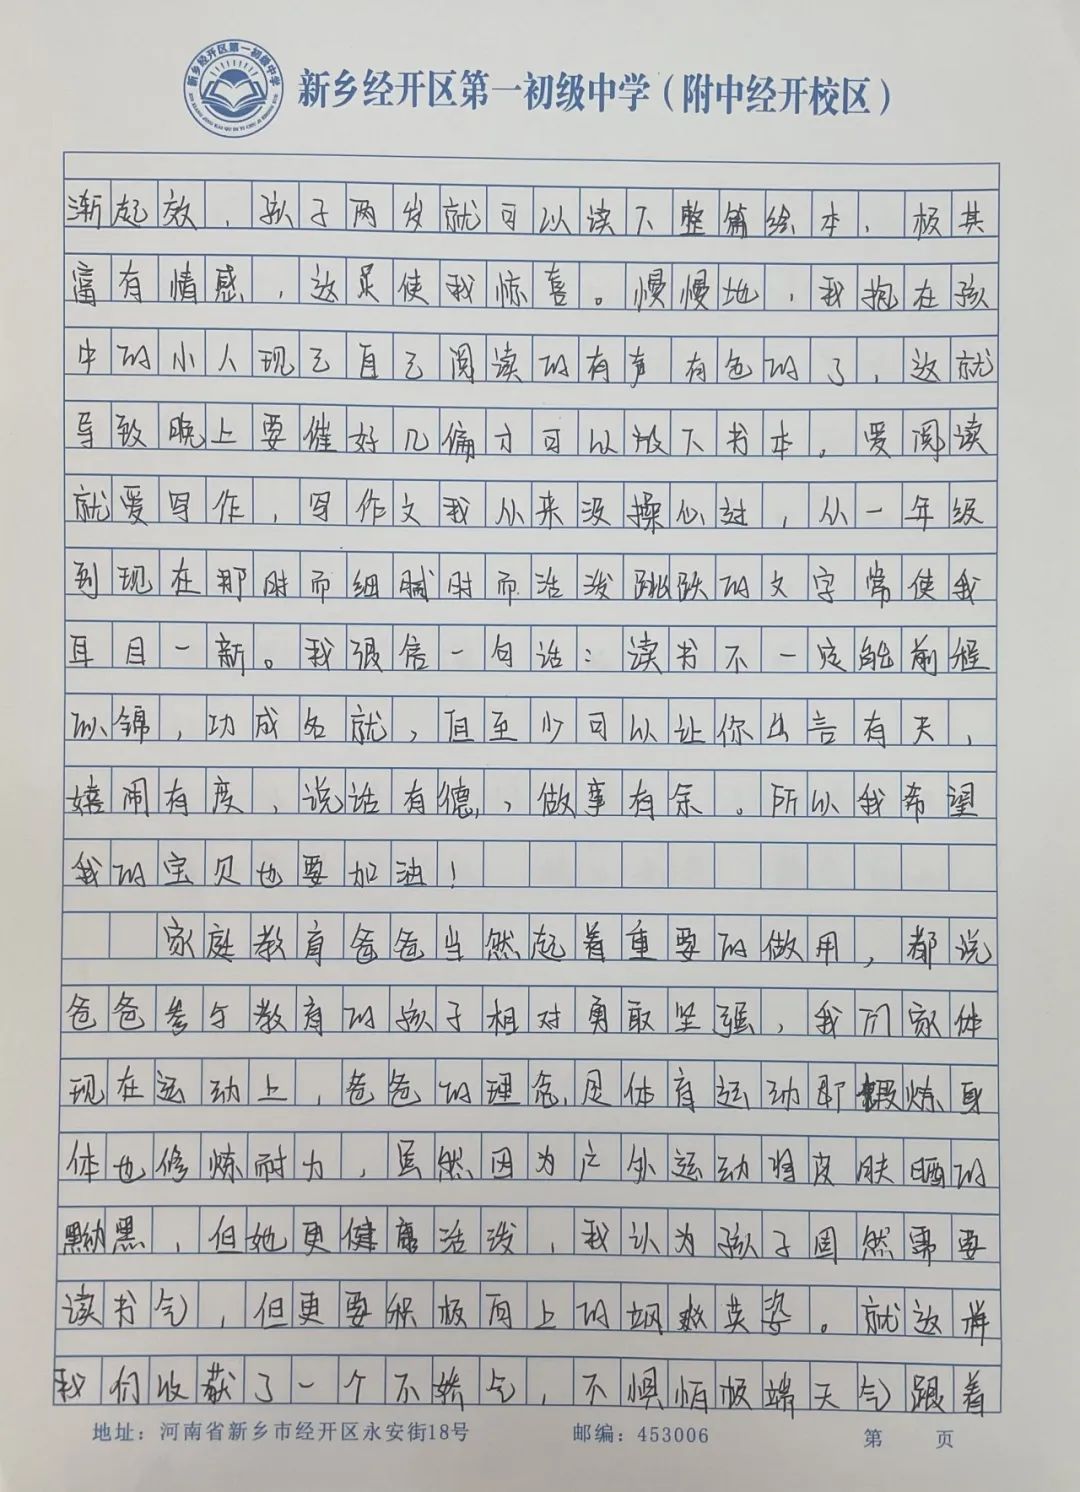 新乡经开区第一初级中学
新乡经开区第一初级中学（附中经开校区）
渐起效，孩子两岁就可以读下整篇绘本，极其
富有情感，这足使我惊喜。慢慢地，我抱在孩
中的小人现已自己阅读的有声有色的了，这就
导致晚上要催好几偏才可以放下书本。爱阅读
就爱写作，写作文我从来没操心过，从一年级
到现在那时而细腻时而活泼跳跃的文字常使我
耳目一新。我很信一句话：读书不一定能前程
似锦，功成名就，但至少可以让你出言有尺，
嬉闹有度，说话有德，做事有余。所以我希望
我的宝贝也要加油！
家庭教育爸爸当然起着重要的做用，都说
爸爸参与教育的孩子相对勇敢坚强，我们家体
现在运动上，爸爸的理念是体育运动即锻炼身
体也修炼耐力，虽然因为户外运动将皮肤晒的
黝黑，但她更健康活泼，我认为孩子固然需要
读书气，但更要积极向上的飒爽英姿。就这样
我们收获了一个不娇气，不惧怕极端天气跟着
地址：河南省新乡市经开区永安街18号
邮编：453006
第 页